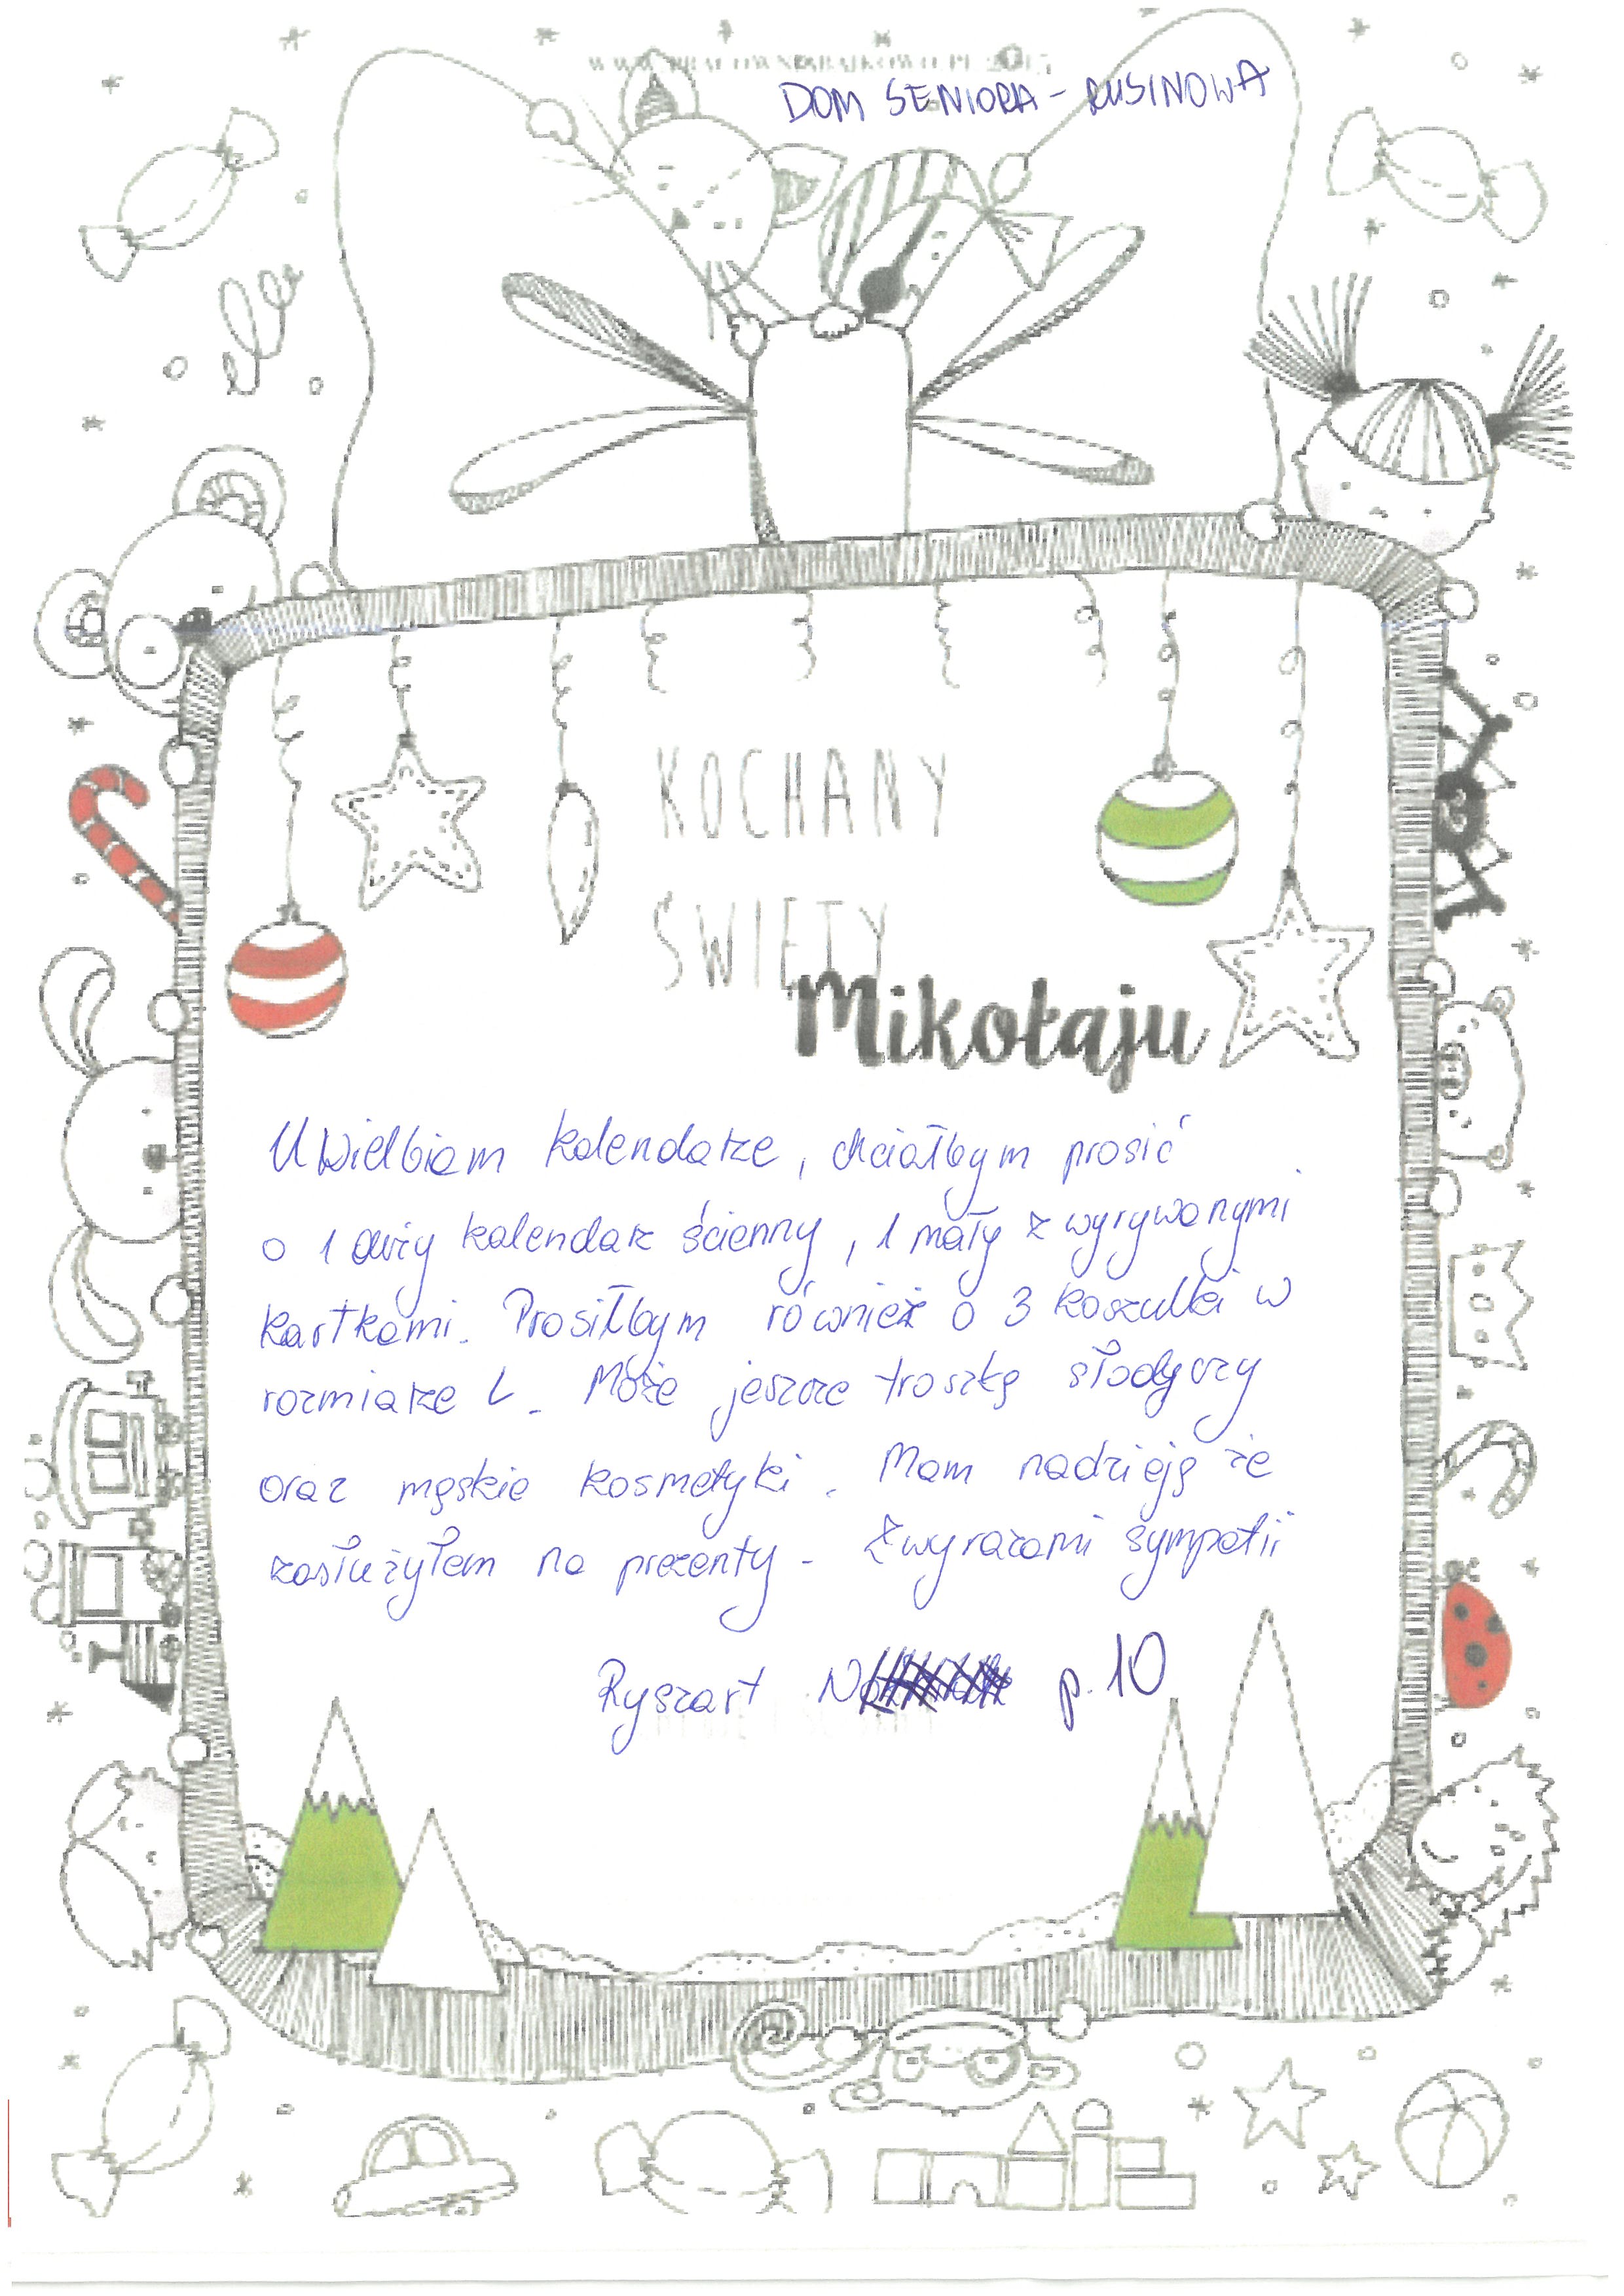 DOM SENIORA - RUSINOWA
KOCHANY
ŚWIĘTY
Mikołaju
Uwielbiam kalendarze, chciałbym prosić
o 1 duży kalendarz ścienny, 1 mały z wyrywanymi
kartkami. Prosiłbym również o 3 koszulki w
rozmiarze L. Może jeszcze troszkę słodyczy
oraz męskie kosmetyki. Mam nadzieję że
zasłużyłem na prezenty - Z wyrazami sympatii
Ryszart p. 10